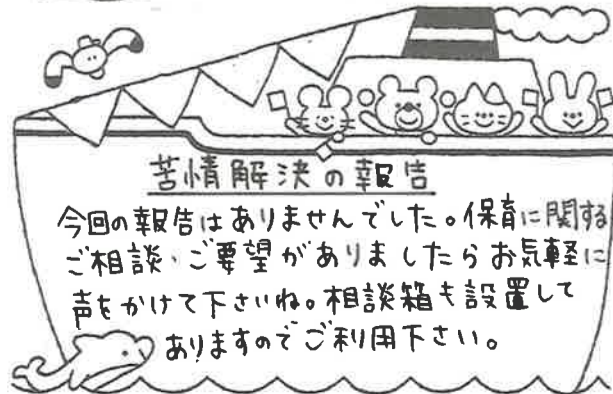 苦情解決の報告
今回の報告はありませんでした。保育に関する
ご相談・ご要望がありましたらお気軽に
声をかけて下さいね。相談箱も設置して
ありますのでご利用下さい。